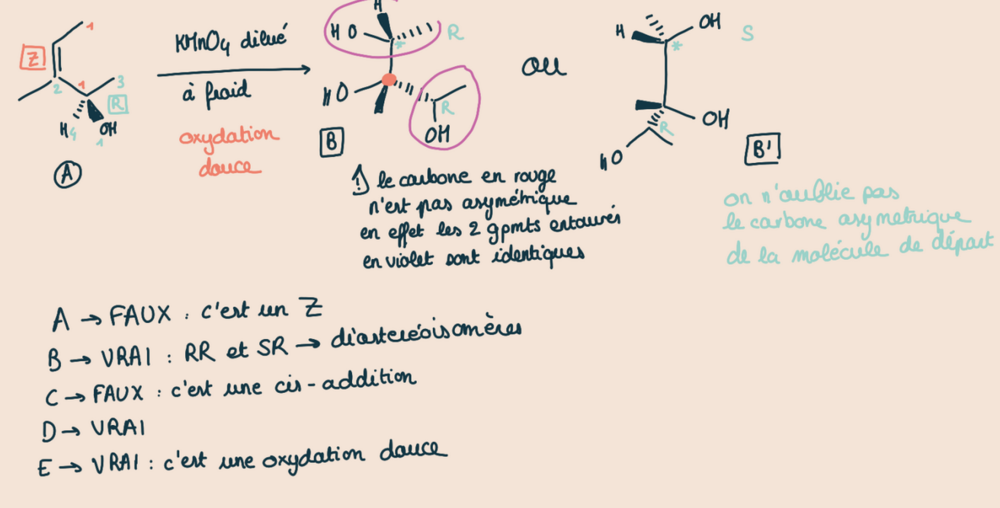 1
Z
2
1
3
R
H4
OH
1
A
KMnO4 dilué
à froid
oxydation
douce
H
HO
*
R
HO
R
OH
B
ou
H
OH
S
*
OH
R
HO
B'
! le carbone en rouge
n'est pas asymétrique
en effet les 2 gpmts entourés
en violet sont identiques
on n'oublie pas
le carbone asymetrique
de la molécule de départ
A → FAUX : c'est un Z
B → VRAI : RR et SR → diastéréoisomères
C → FAUX : c'est une cis-addition
D → VRAI
E → VRAI : c'est une oxydation douce